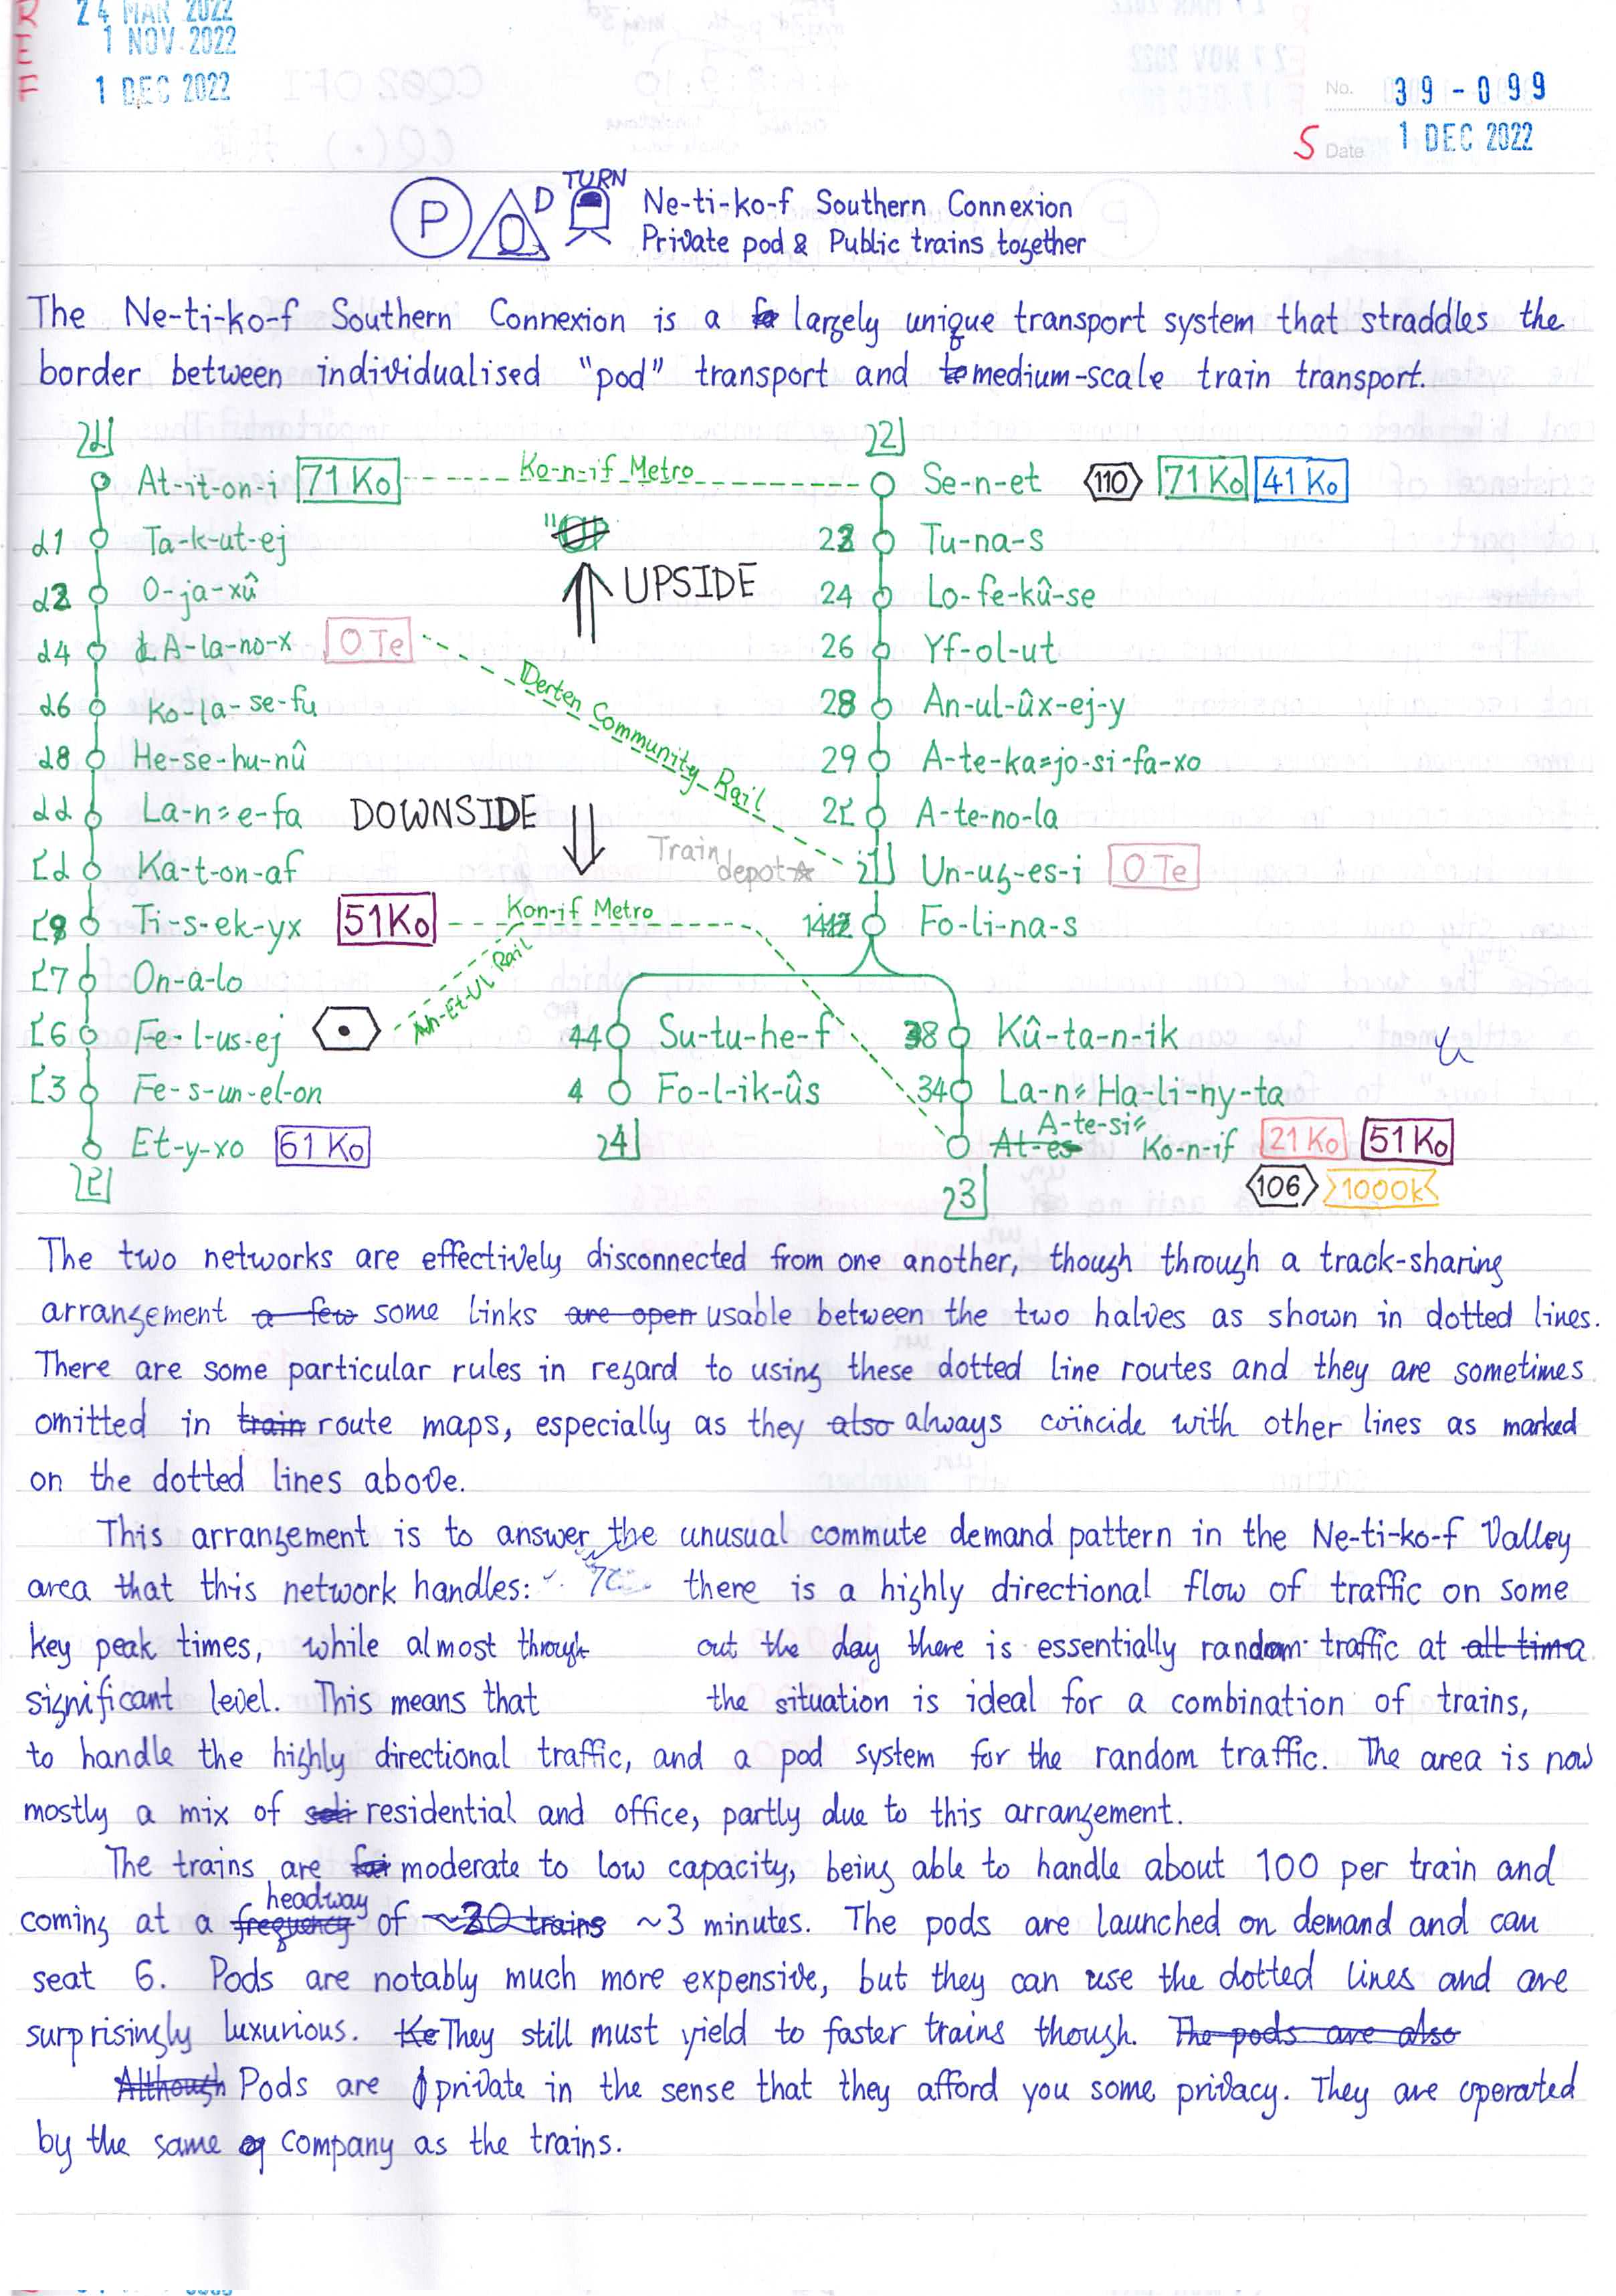 R E F
24 MAR 2022
1 NOV 2022
1 DEC 2022
No. 39-099
S Date 1 DEC 2022
P D TURN Ne-ti-ko-f Southern Connexion
Private pod & Public trains together
The Ne-ti-ko-f Southern Connexion is a largely unique transport system that straddles the
border between individualised "pod" transport and medium-scale train transport.
At-it-on-i 71 Ko Ko-n-if Metro 22 Se-n-et 110 71 Ko 41 Ko
Ta-k-ut-ej 23 Tu-na-s
O-ja-xû UPSIDE 24 Lo-fe-kû-se
A-la-no-x 0 Te 26 Yf-ol-ut
Derten Community Rail
Ko-la-se-fu 28 An-ul-ûx-ej-y
He-se-hu-nû 29 A-te-ka=jo-si-fa-xo
La-n=e-fa DOWNSIDE A-te-no-la
Ka-t-on-af Train depot☆ Un-ug-es-i 0 Te
Ti-s-ek-yx 51 Ko Kon-if Metro Fo-li-na-s
On-a-lo
An-Et-Ul Rail
Fe-l-us-ej 44 Su-tu-he-f 38 Kû-ta-n-ik
Fe-s-un-el-on 4 Fo-l-ik-ûs 34 La-n=Ha-li-ny-ta
Et-y-xo 61 Ko 24 At-es A-te-si= Ko-n-if 21 Ko 51 Ko
23 106 1000k
The two networks are effectively disconnected from one another, though through a track-sharing
arrangement a few some links are open usable between the two halves as shown in dotted lines.
There are some particular rules in regard to using these dotted line routes and they are sometimes
omitted in train route maps, especially as they also always coïncide with other lines as marked
on the dotted lines above.
This arrangement is to answer the unusual commute demand pattern in the Ne-ti-ko-f Valley
area that this network handles: there is a highly directional flow of traffic on some
key peak times, while almost through out the day there is essentially random traffic at all tim a
significant level. This means that the situation is ideal for a combination of trains,
to handle the highly directional traffic, and a pod system for the random traffic. The area is now
mostly a mix of residential and office, partly due to this arrangement.
The trains are moderate to low capacity, being able to handle about 100 per train and
coming at a frequency headway of ~20 trains ~3 minutes. The pods are launched on demand and can
seat 6. Pods are notably much more expensive, but they can use the dotted lines and are
surprisingly luxurious. They still must yield to faster trains though. The pods are also
Although Pods are private in the sense that they afford you some privacy. They are operated
by the same company as the trains.